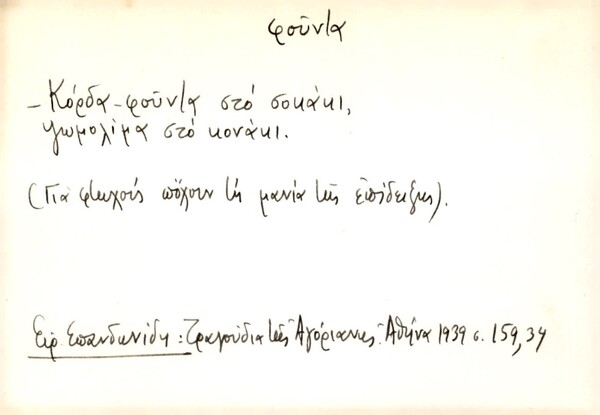 φοῦντα
– Κόρδα – φοῦντα στό σοκάκι,
ψωμολίμα στό κονάκι.
(Γιά φτωχούς πὄχουν τή μανία τῆς ἐπίδειξης).
Εἰρ. Σπανδωνίδη : Τραγούδια τῆς Ἀγόριανης. Ἀθήνα 1939 σ. 159, 34